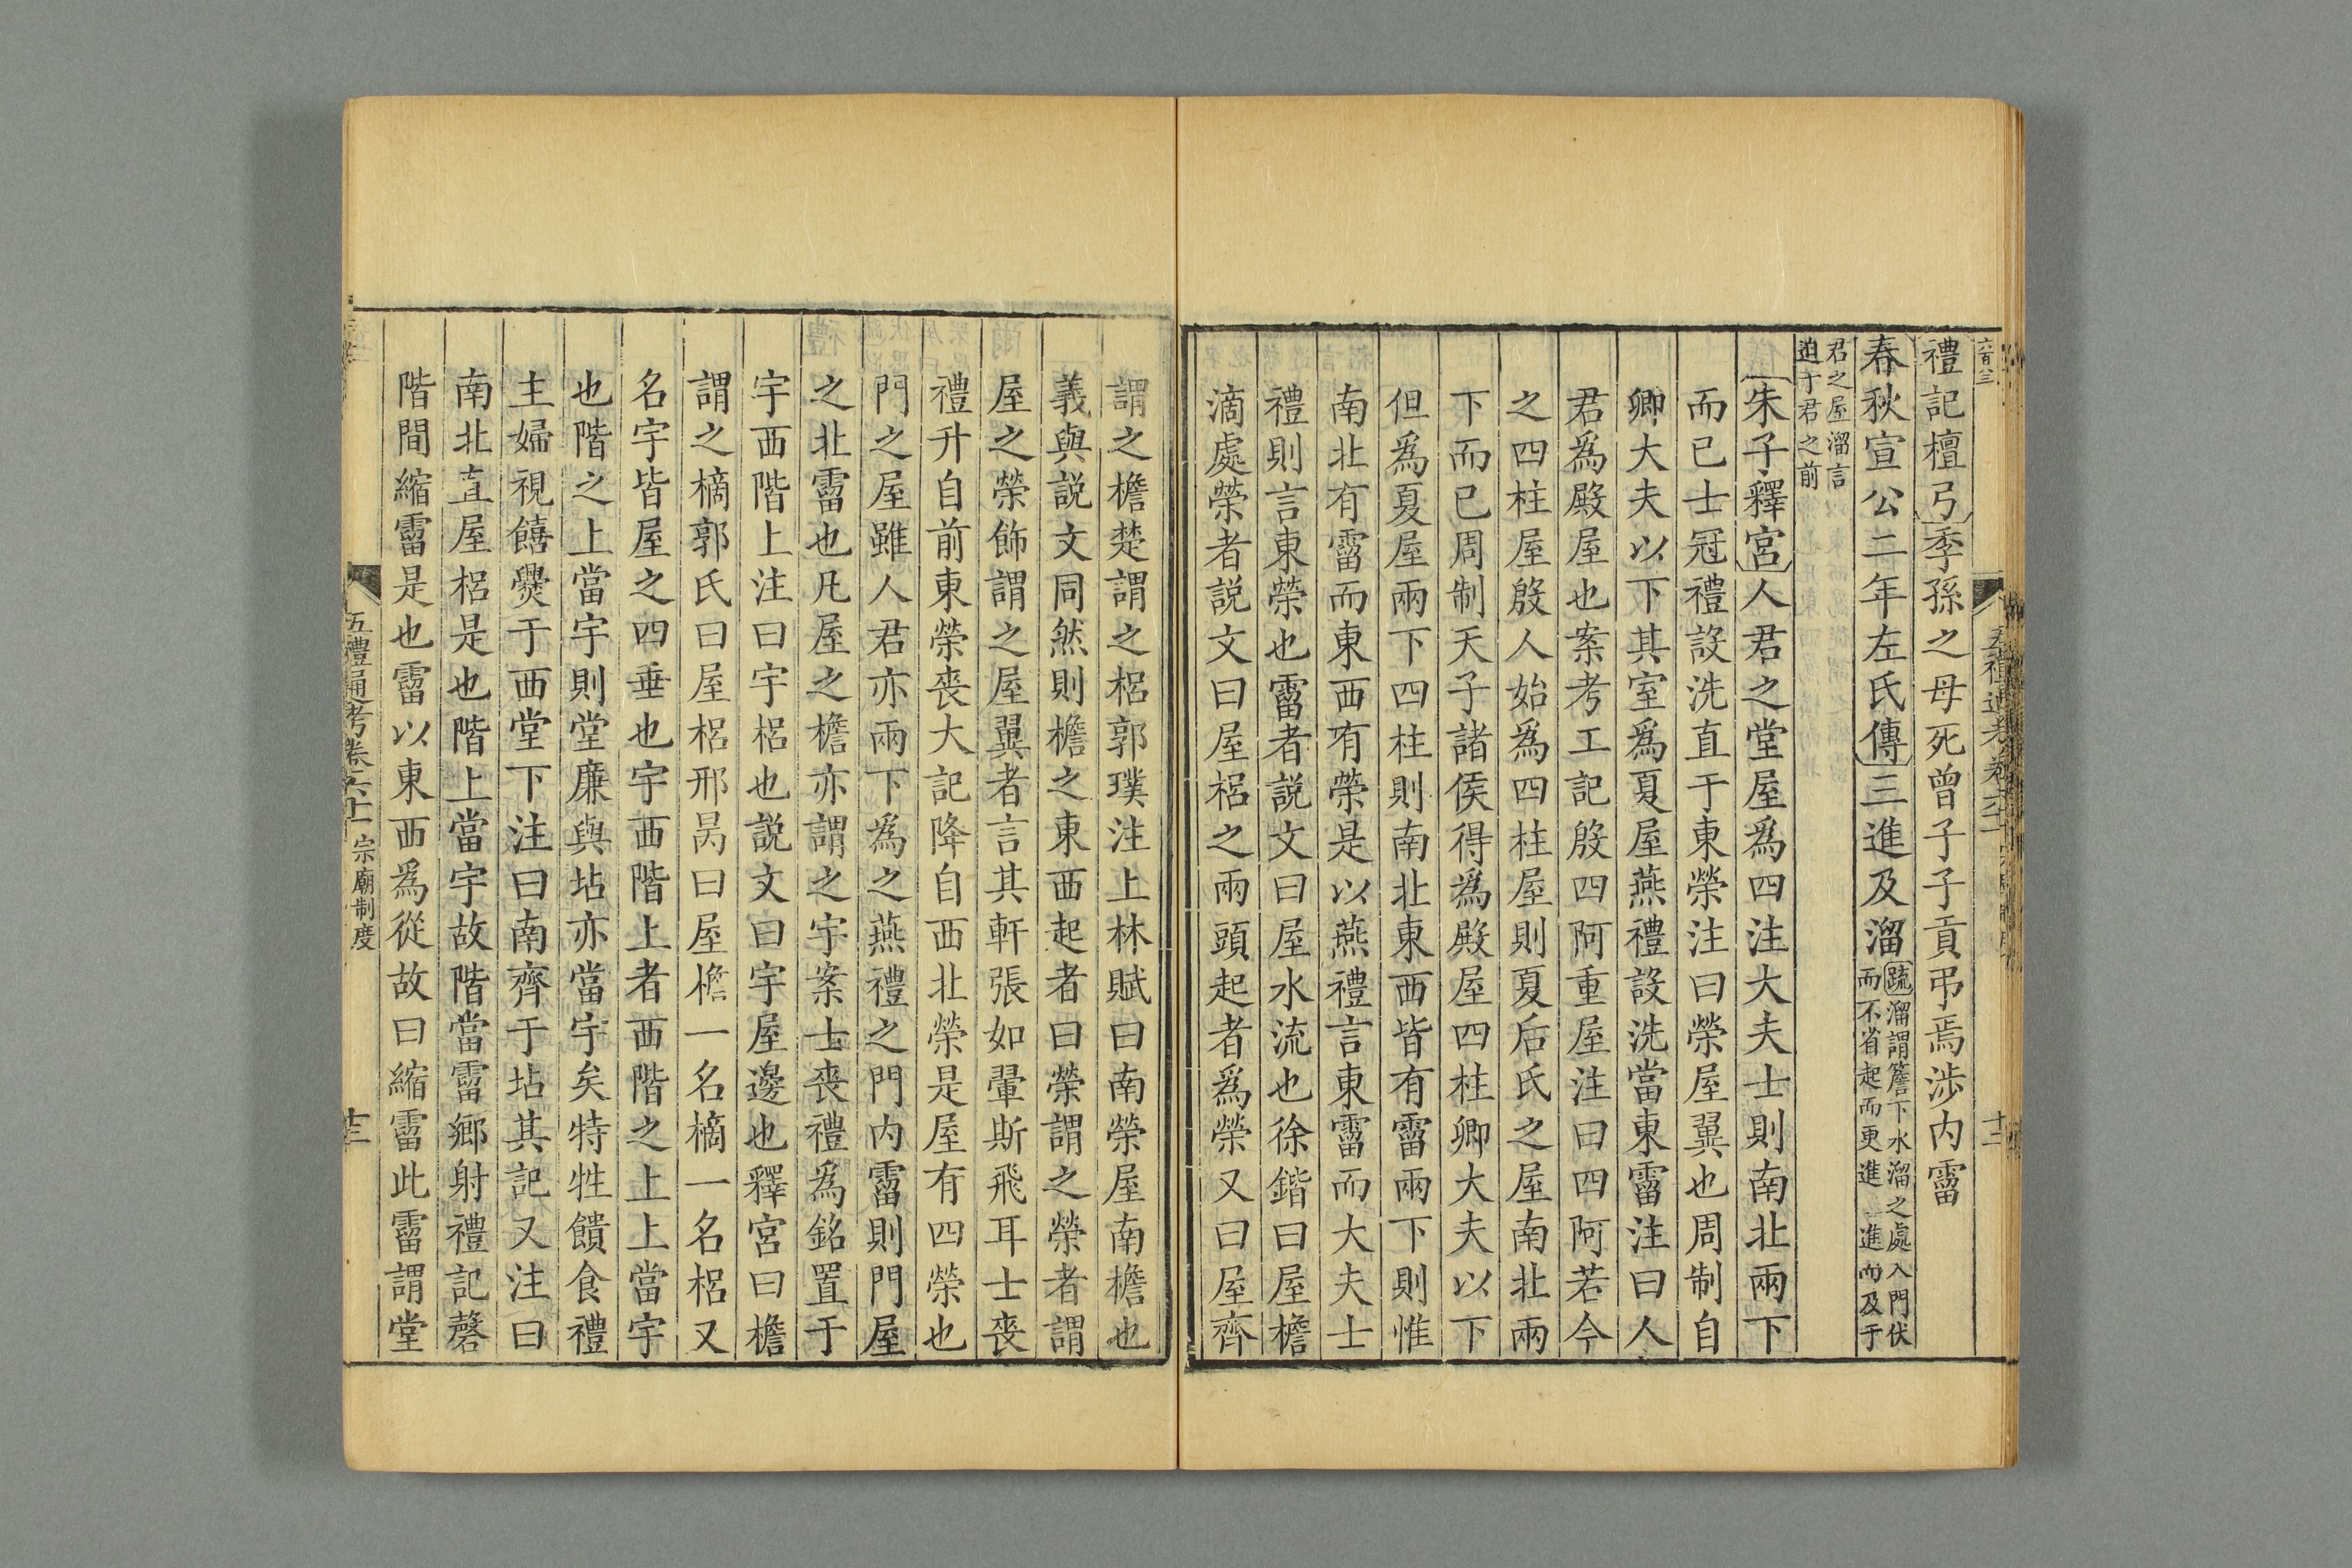 禮記檀弓季孫之母死曾子子貢弔焉涉內霤
春秋宣公二年左氏傳三進及溜疏溜謂簷下水溜之處入門伏而不省起而更進一進而及于
君之屋溜言迫于君之前
朱子釋宮人君之堂屋爲四注大夫士則南北兩下
而已士冠禮設洗直于東榮注曰榮屋翼也周制自
卿大夫以下其室爲夏屋燕禮設洗當東霤注曰人
君爲殿屋也案考工記殷四阿重屋注曰四阿若今
之四柱屋殷人始爲四柱屋則夏后氏之屋南北兩
下而已周制天子諸侯得爲殿屋四柱卿大夫以下
但爲夏屋兩下四柱則南北東西皆有霤兩下則惟
南北有霤而東西有榮是以燕禮言東霤而大夫士
禮則言東榮也霤者說文曰屋水流也徐鍇曰屋檐
滴處榮者說文曰屋梠之兩頭起者爲榮又曰屋齊
謂之檐楚謂之梠郭璞注上林賦曰南榮屋南檐也
義與說文同然則檐之東西起者曰榮謂之榮者謂
屋之榮飾謂之屋翼者言其軒張如翬斯飛耳士喪
禮升自前東榮喪大記降自西北榮是屋有四榮也
門之屋雖人君亦兩下爲之燕禮之門內霤則門屋
之北霤也凡屋之檐亦謂之宇案士喪禮爲銘置于
宇西階上注曰宇梠也說文曰宇屋邊也釋宮曰檐
謂之樀郭氏曰屋梠邢昺曰屋檐一名樀一名梠又
名宇皆屋之四垂也宇西階上者西階之上上當宇
也階之上當宇則堂廉與坫亦當宇矣特牲饋食禮
主婦視饎爨于西堂下注曰南齊于坫其記又注曰
南北直屋梠是也階上當宇故階當霤鄉射禮記磬
階間縮霤是也霤以東西爲從故曰縮霤此霤謂堂
五禮通考卷六十一 宗廟制度
十三